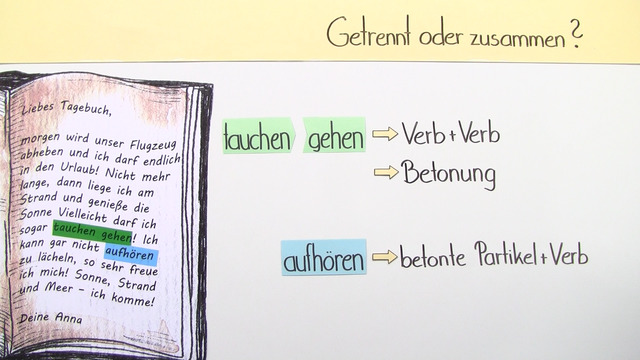 Getrennt oder zusammen?
Liebes Tagebuch,
morgen wird unser Flugzeug
abheben und ich darf endlich
in den Urlaub! Nicht mehr
lange, dann liege ich am
Strand und genieße die
Sonne Vielleicht darf ich
sogar tauchen gehen! Ich
kann gar nicht aufhören
zu lächeln, so sehr freue
ich mich! Sonne, Strand
und Meer - ich komme!
Deine Anna
tauchen gehen ⇨ Verb + Verb
⇨ Betonung
aufhören ⇨ betonte Partikel + Verb